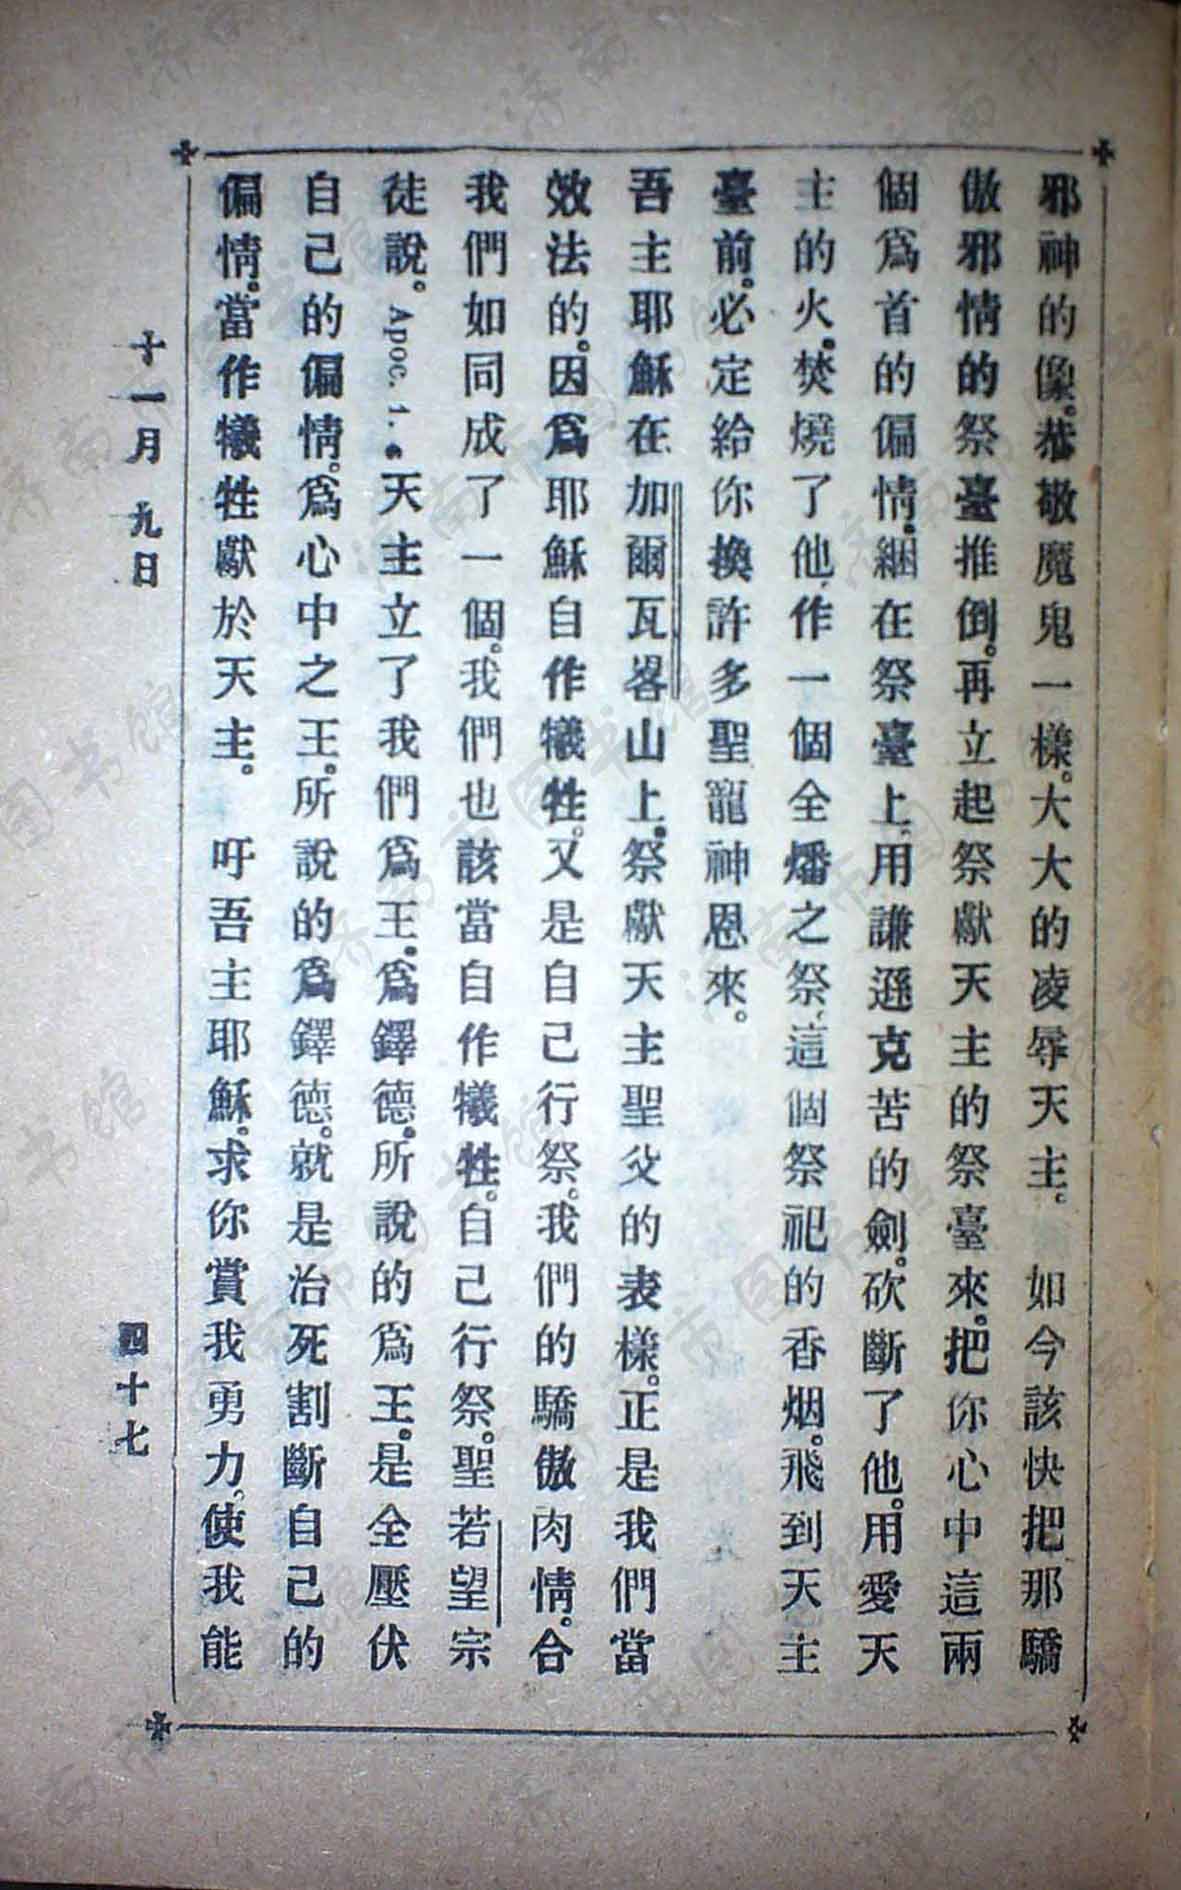 邪神的像。恭敬魔鬼一樣。大大的凌辱天主。　如今該快把那驕
傲邪情的祭臺推倒。再立起祭獻天主的祭臺來。把你心中這兩
個爲首的偏情。綑在祭臺上、用謙遜克苦的劍。砍斷了他。用愛天
主的火。焚燒了他、作一個全燔之祭、這個祭祀的香烟。飛到天主
臺前。必定給你換許多聖寵神恩來。
吾主耶穌在加爾瓦畧山上。祭獻天主聖父的表樣。正是我們當
效法的。因爲耶穌自作犧牲。又是自己行祭。我們的驕傲肉情。合
我們如同成了一個。我們也該當自作犧牲。自己行祭。聖若望宗
徒說。Apoc. 1. 6 天主立了我們爲王。爲鐸德。所說的爲王。是全壓伏
自己的偏情。爲心中之王。所說的爲鐸德。就是治死割斷自己的
偏情。當作犧牲獻於天主。　吁吾主耶穌。求你賞我勇力。使我能
十一月　九日
四十七